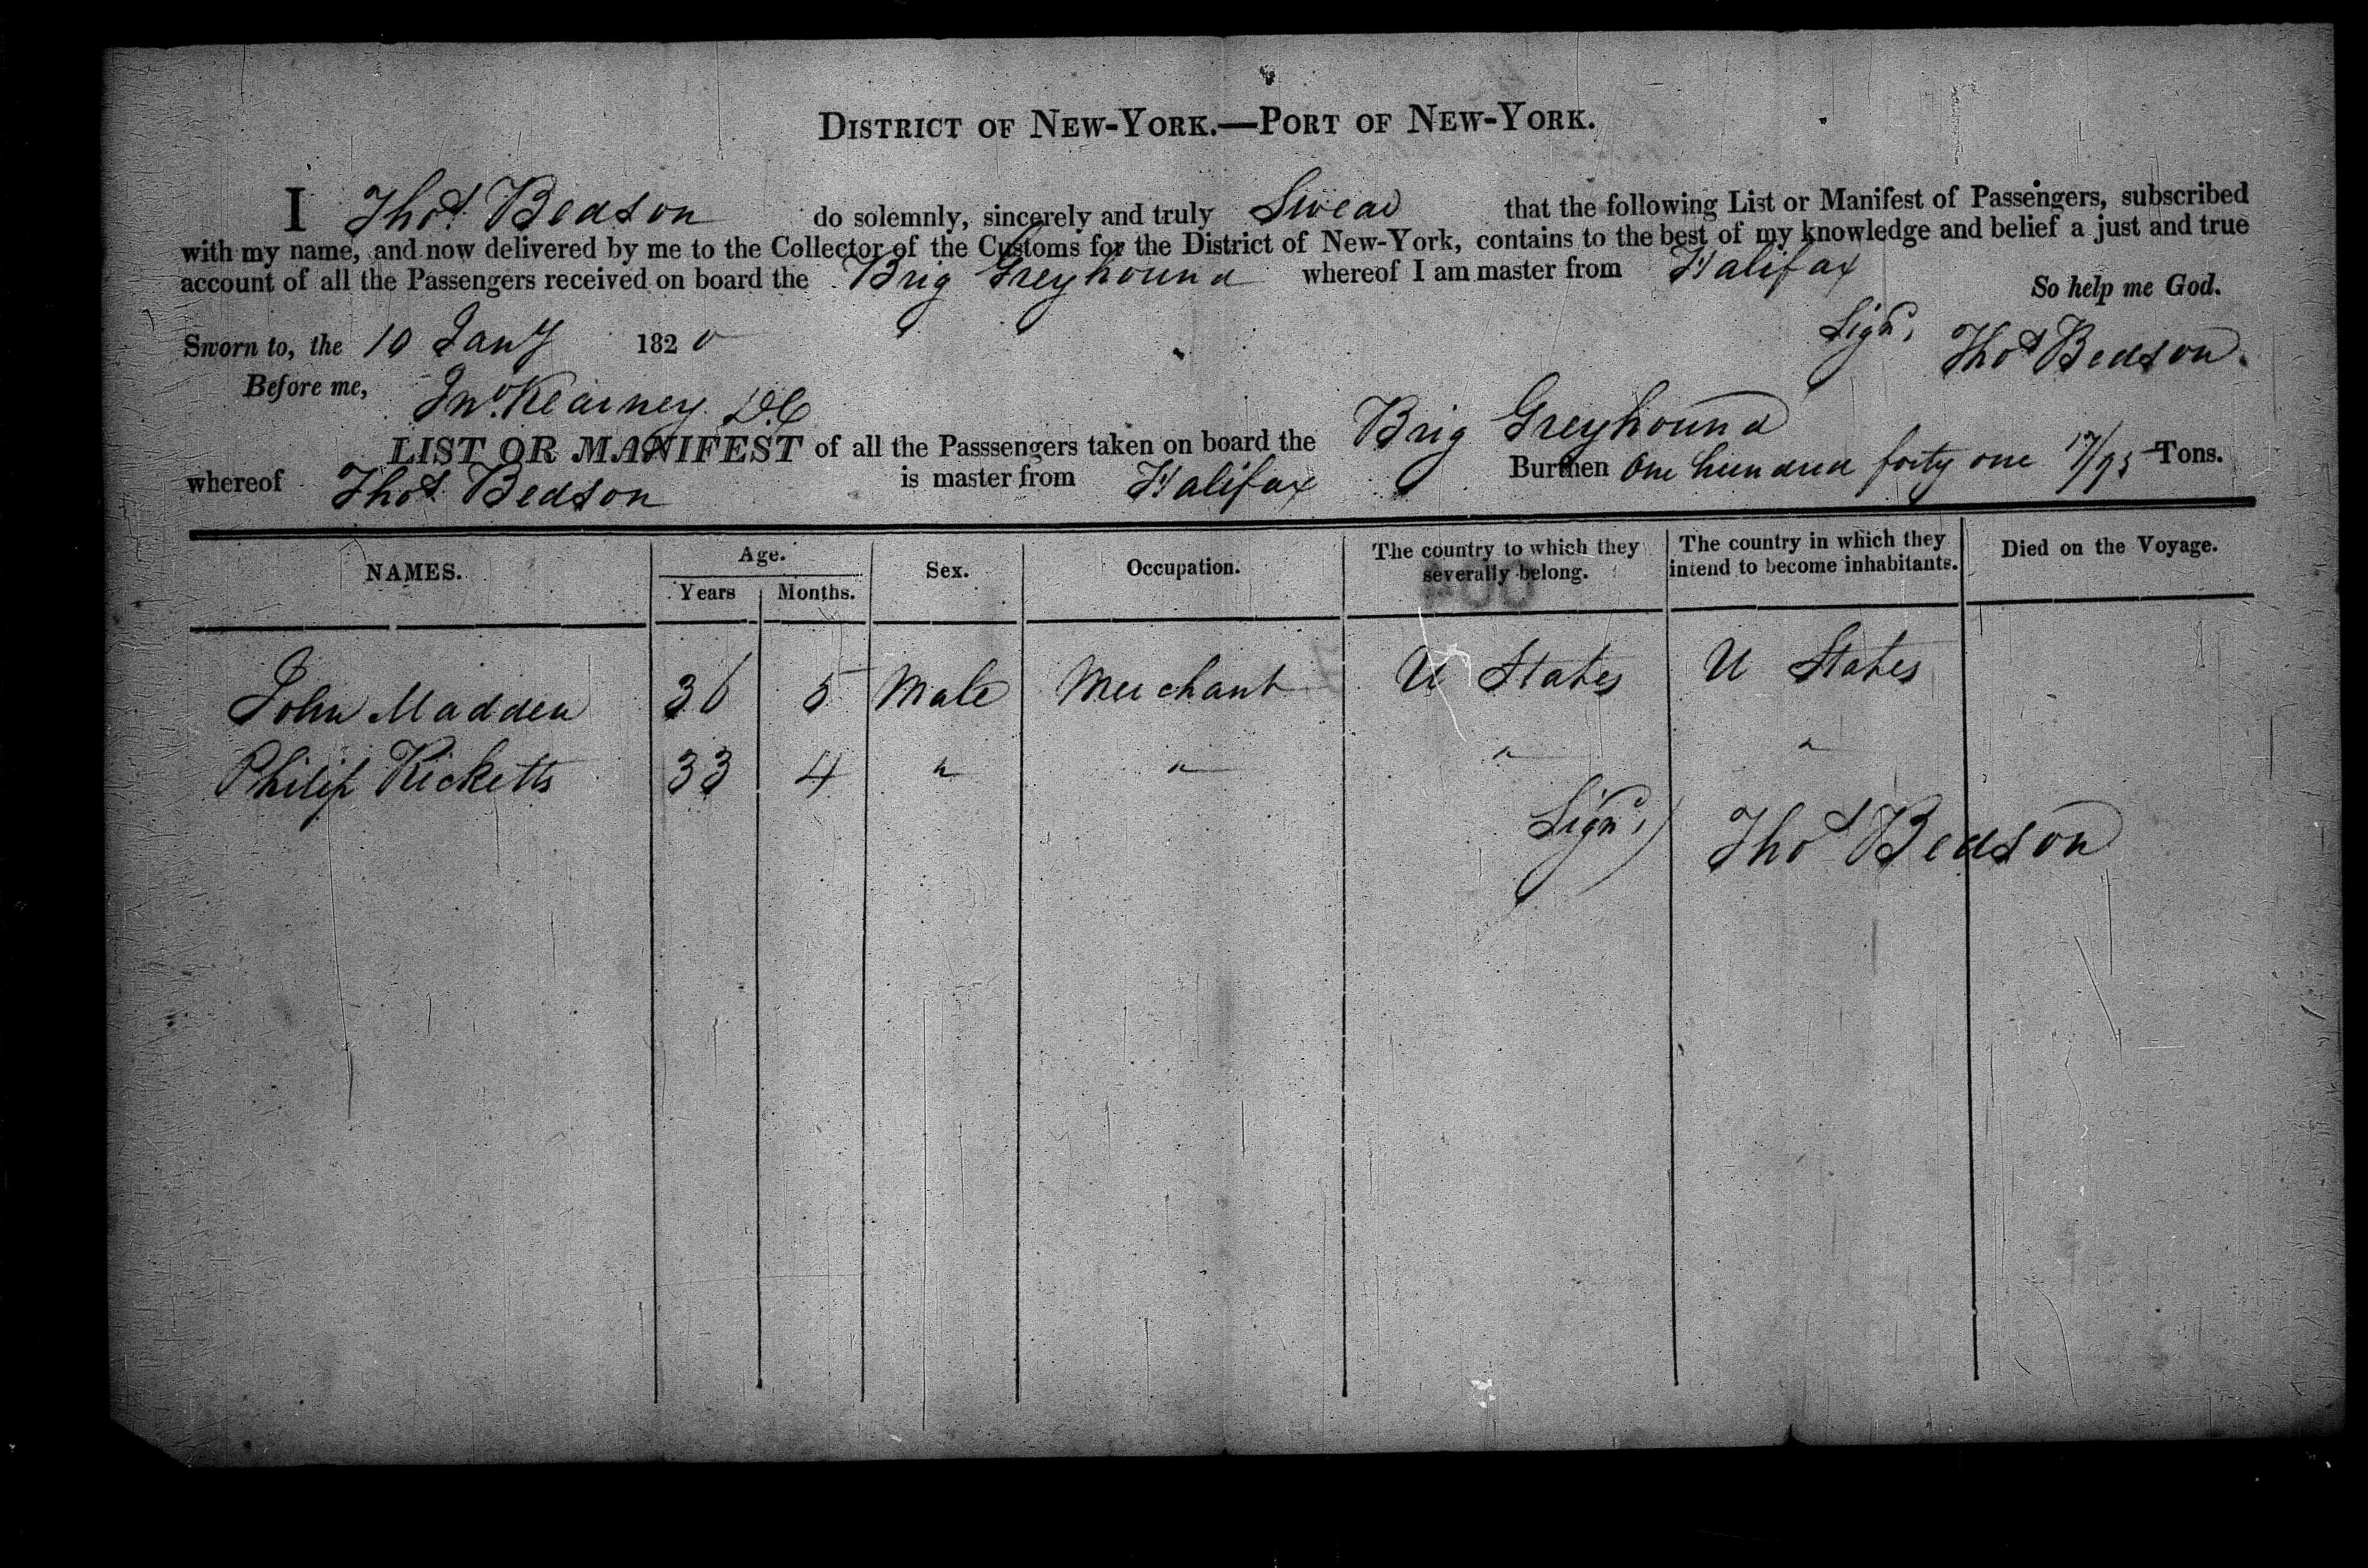 DISTRICT OF NEW-YORK.—PORT OF NEW-YORK.
I Thos. Bedson do solemnly, sincerely and truly Swear that the following List or Manifest of Passengers, subscribed
with my name, and now delivered by me to the Collector of the Customs for the District of New-York, contains to the best of my knowledge and belief a just and true
account of all the Passengers received on board the Brig Greyhound whereof I am master from Halifax
So help me God.
Sworn to, the 10 Jany 1820
Signd, Thos Bedson.
Before me, Jno. Kearney. D.C
LIST OR MANIFEST of all the Passsengers taken on board the Brig Greyhound
whereof Thos. Bedson is master from Halifax Burthen One hundred forty one 17/95 Tons.
NAMES. Age. Sex. Occupation. The country to which they severally belong. The country in which they intend to become inhabitants. Died on the Voyage.
Years Months.
John Madden 36 5 Male Merchant U States U States
Philip Ricketts 33 4 " " " "
Signd,) Thos Bedson